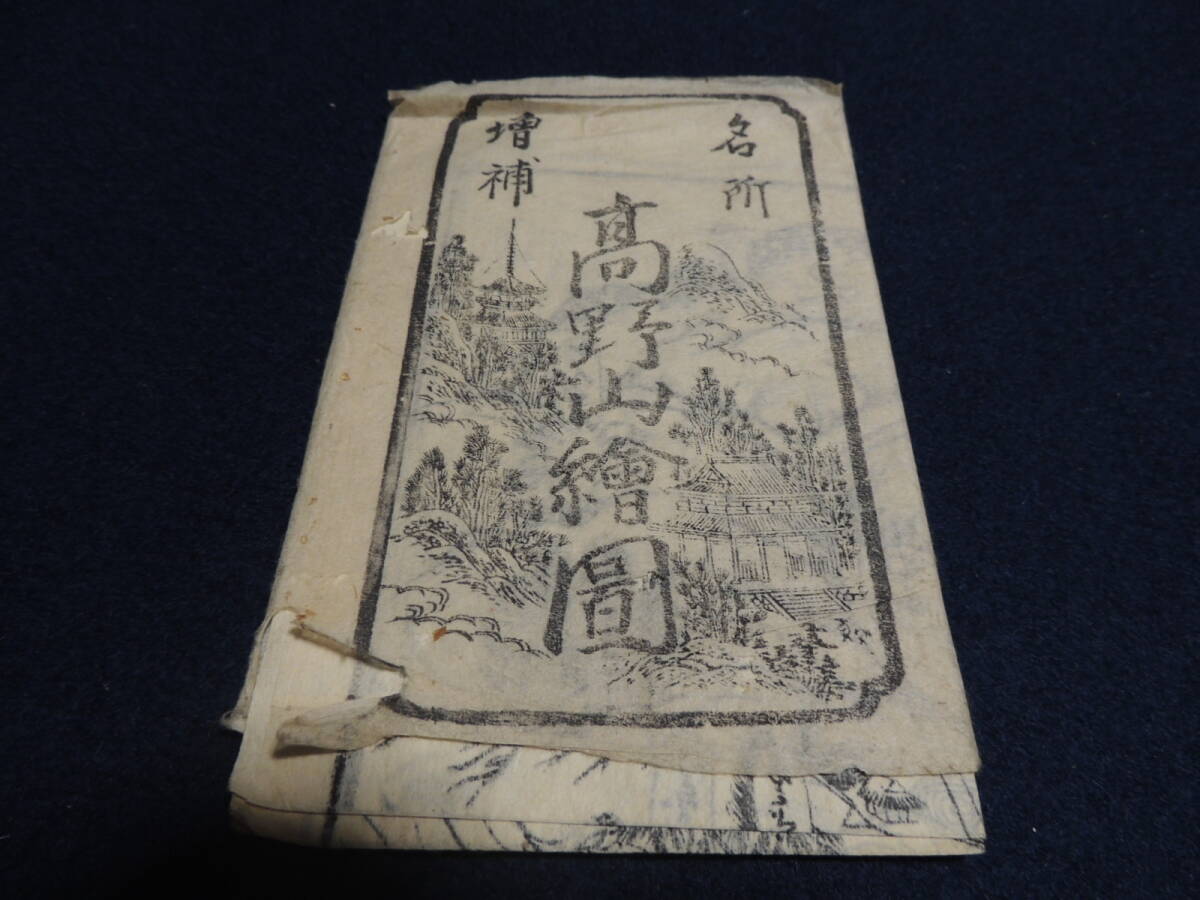 名所
増補
高野山繪圖